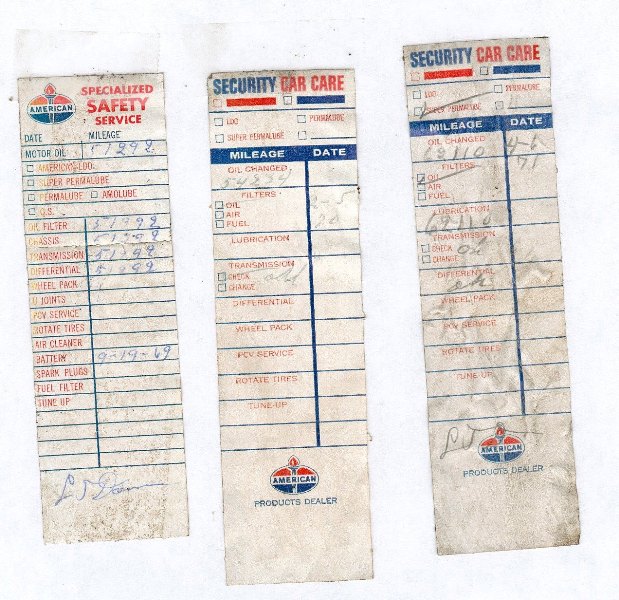 AMERICAN
SPECIALIZED
SAFETY
SERVICE
DATE MILEAGE
MOTOR OIL 51292
AMERICAN LDO
SUPER PERMALUBE
PERMALUBE AMOLUBE
Q.S.
OIL FILTER 51292
CHASSIS 51292
TRANSMISSION 51292
DIFFERENTIAL 51292
WHEEL PACK
U JOINTS
PCV SERVICE
ROTATE TIRES
AIR CLEANER
BATTERY 9-19-69
SPARK PLUGS
FUEL FILTER
TUNE UP
SECURITY CAR CARE
LDO PERMALUBE
SUPER PERMALUBE
MILEAGE DATE
OIL CHANGED
FILTERS
OIL
AIR
FUEL
LUBRICATION
TRANSMISSION
CHECK ok
CHANGE
DIFFERENTIAL
WHEEL PACK
PCV SERVICE
ROTATE TIRES
TUNE-UP
AMERICAN
PRODUCTS DEALER
SECURITY CAR CARE
LDO PERMALUBE
SUPER PERMALUBE
MILEAGE DATE
OIL CHANGED
FILTERS 71
OIL
AIR
FUEL
LUBRICATION
TRANSMISSION
CHECK ok
CHANGE
DIFFERENTIAL
ok
WHEEL PACK
PCV SERVICE
ROTATE TIRES
TUNE-UP
AMERICAN
PRODUCTS DEALER